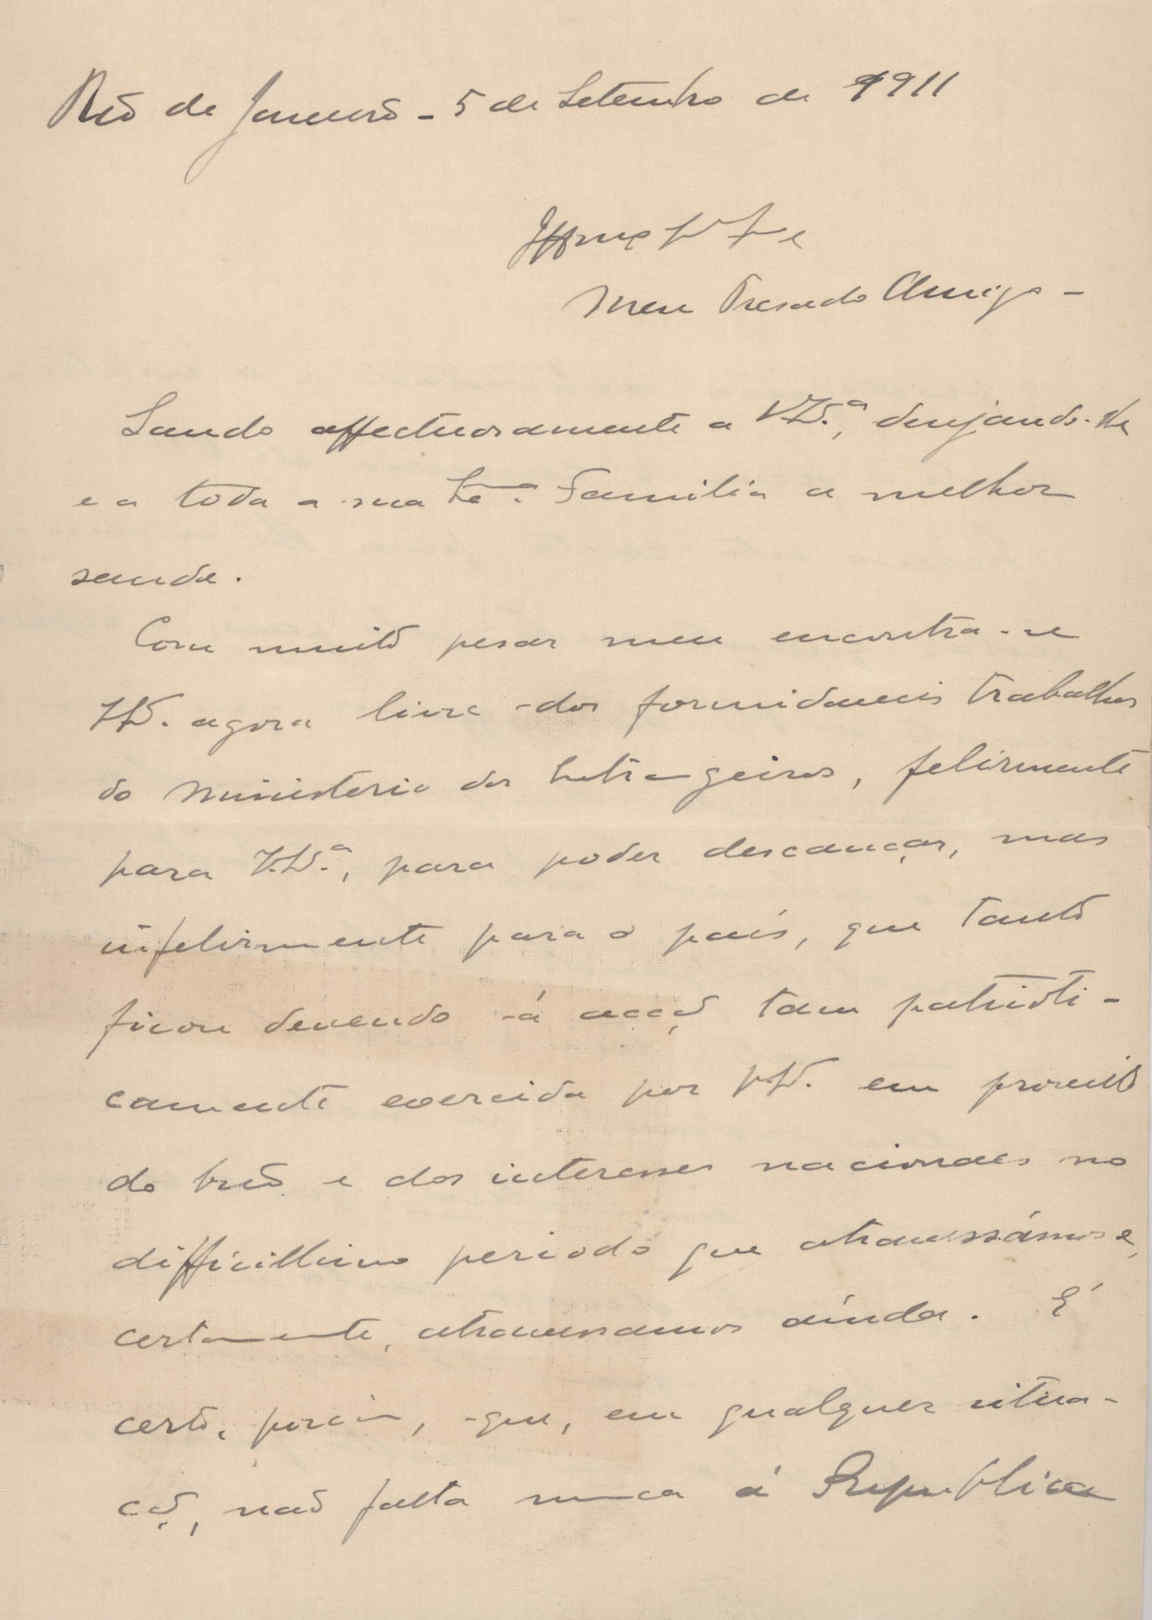 Rio de Janeiro - 5 de Setembro de 1911
Meu Presado Amigo -
Saudo affectuosamente a V. Ex.ª, desejando-lhe
e a toda a sua Ex.ma Familia a melhor
saude.
Com muito pesar meu encontra-se
V. Ex. agora livre dos formidaveis trabalhos
do Ministerio dos Estrangeiros, felizmente
para V. Ex.ª, para poder descançar, mas
infelizmente para o país, que tanto
ficou devendo á acção tam patrioti-
camente exercida por V. Ex. em proveito
do brio e dos interesses nacionaes no
difficillimo periodo que atravessámos e,
certamente, atravessamos ainda. É
certo, porém, que, em qualquer situa-
ção, não falta nunca á Republica